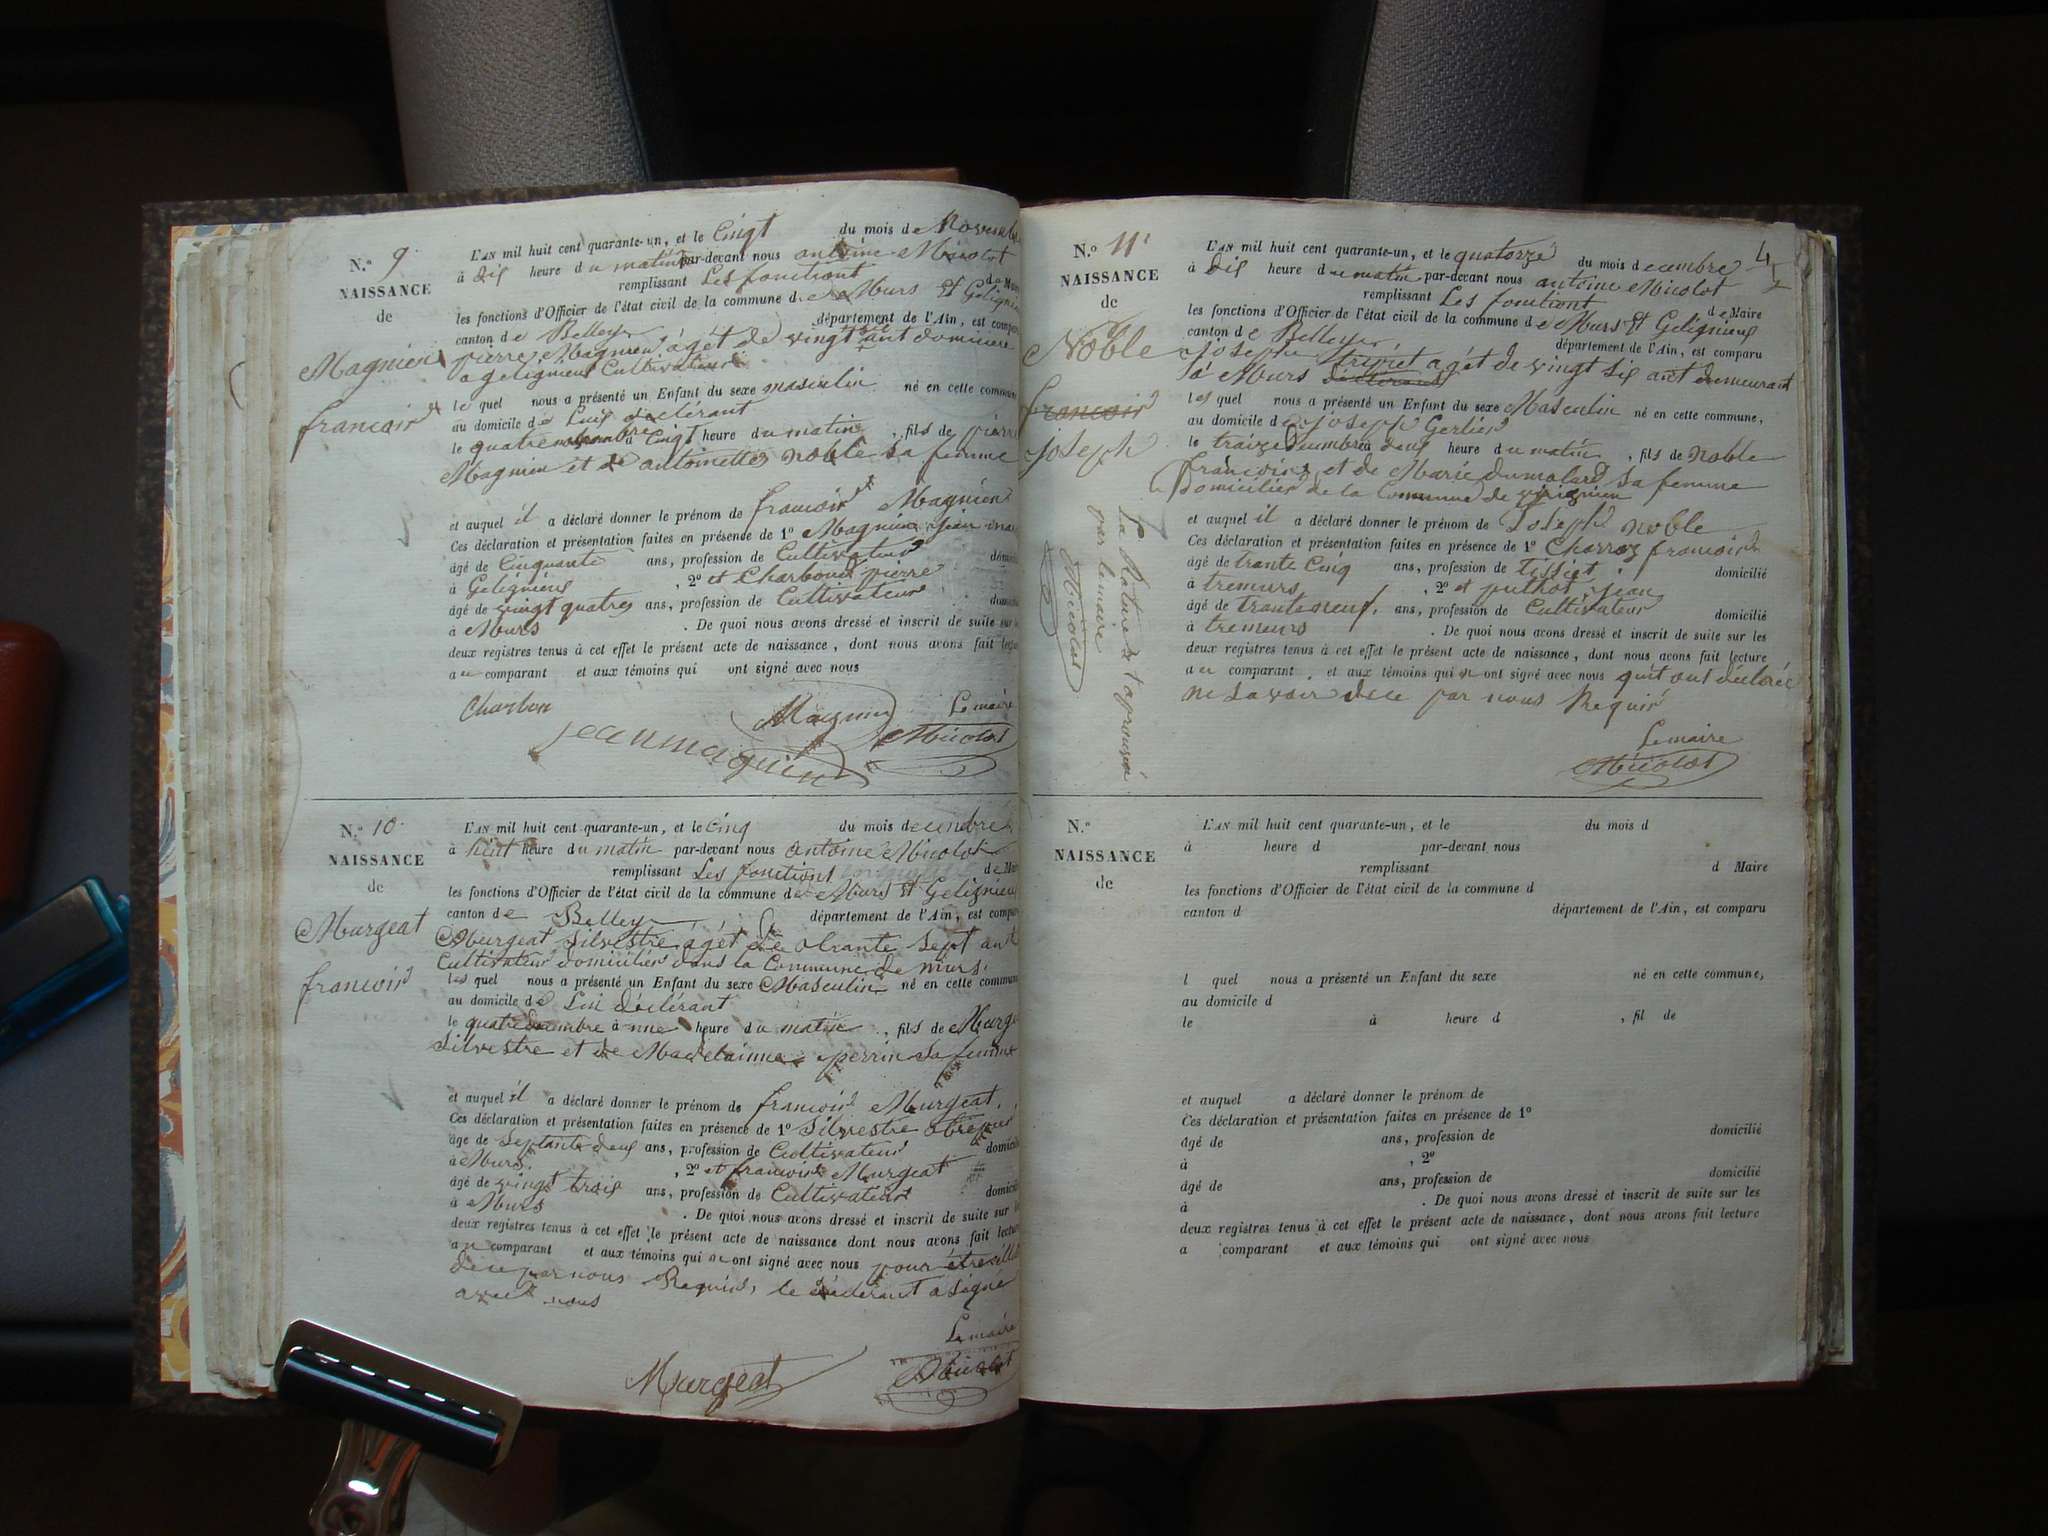 N.o 9
NAISSANCE
de
Magnien
francois
L'AN mil huit cent quarante-un, et le Cinqt du mois de Novembre
à dix heure du matin par-devant nous antoine Micolot
remplissant Les fonctiont de Maire
les fonctions d'Officier de l'état civil de la commune de Murs Et Gelignieu
canton de Belley département de l'Ain, est comparu
pierre Magnien agét de vingt ant
a gelignieu Cultivateur
le quel nous a présenté un Enfant du sexe masculin né en cette commune
au domicile de Luis déclérant
le quatre à Cinqt heure du matin, fils de pierre
Magnien et de antoinette noble Sa femme
et auquel il a déclaré donner le prénom de francois Magnien
Ces déclaration et présentation faites en présence de 1º Magnien jean
âgé de Cinquante ans, profession de Cultivateur
à Gelignieu, 2º et Charbond pierre
âgé de vingt quatres ans, profession de Cultivateur
à Murs. De quoi nous avons dressé et inscrit de suite sur
deux registres tenus à cet effet le présent acte de naissance, dont nous avons fait lecture
au comparant et aux témoins qui ont signé avec nous
Charbon Magnin Le maire
jean magnien Micolot
N.o 10
NAISSANCE
de
Murgeat
francois
L'AN mil huit cent quarante-un, et le Cinq du mois decembre
à huit heure du matin par-devant nous antoine Micolot
remplissant Les fonctiont de
les fonctions d'Officier de l'état civil de la commune de Murs Et Gelignieu
canton de Belley département de l'Ain, est comparu
Murgeat Silvestre agét de trante Sept ant
Cultivateur domicilier dans la Commune de murs
les quel nous a présenté un Enfant du sexe Masculin né en cette commune
au domicile de Lui déclérant
le quatre decembre à une heure du matin, fils de
Silvestre et de Madelainne perrin Sa femme
et auquel il a déclaré donner le prénom de francois Murgeat
Ces déclaration et présentation faites en présence de 1º Silvestre
âgé de Septante deux ans, profession de Cultivateur
à Murs, 2º et francois Murgeat
âgé de vingt trois ans, profession de Cultivateur
à Murs. De quoi nous avons dressé et inscrit de suite sur
deux registres tenus à cet effet le présent acte de naissance dont nous avons fait lecture
au comparant et aux témoins qui n ont signé avec nous pour être
de ce par nous Requis, le déclérant a Signé
avect nous
Le maire
Murgeat Micolot
N.o 11
NAISSANCE
de
Noble
francois
joseph
La Rature est aprouvé
par le maire
Micolot
4
L'AN mil huit cent quarante-un, et le quatorze du mois decembre
à dix heure du matin par-devant nous antoine Micolot
remplissant Les fonctiont de Maire
les fonctions d'Officier de l'état civil de la commune de Murs Et Gelignieu
canton de Belley département de l'Ain, est comparu
joseph agét de vingt six ant demeurant
a Murs
les quel nous a présenté un Enfant du sexe Masculin né en cette commune,
au domicile de joseph Gerlier
le traize decembre à deux heure du matin, fils de noble
francois et de Marie Dumolard Sa femme
Domicilier de la Commune de
et auquel il a déclaré donner le prénom de joseph noble
Ces déclaration et présentation faites en présence de 1º Charroz francois
âgé de trante Cinq ans, profession de tissiet domicilié
à tremurs, 2º et puthot jean
âgé de trante neuf, ans, profession de Cultivateur domicilié
à tremurs. De quoi nous avons dressé et inscrit de suite sur les
deux registres tenus à cet effet le présent acte de naissance, dont nous avons fait lecture
au comparant, et aux témoins qui n ont signé avec nous quit ont déclaré
ne Savoir de ce par nous Requis
Le maire
Micolot
N.o
NAISSANCE
de
L'AN mil huit cent quarante-un, et le du mois d
à heure d par-devant nous
remplissant d Maire
les fonctions d'Officier de l'état civil de la commune d
canton d département de l'Ain, est comparu
l quel nous a présenté un Enfant du sexe né en cette commune,
au domicile d
le à heure d, fil de
et auquel a déclaré donner le prénom de
Ces déclaration et présentation faites en présence de 1º
âgé de ans, profession de domicilié
à, 2º
âgé de ans, profession de domicilié
à. De quoi nous avons dressé et inscrit de suite sur les
deux registres tenus à cet effet le présent acte de naissance, dont nous avons fait lecture
a comparant et aux témoins qui ont signé avec nous